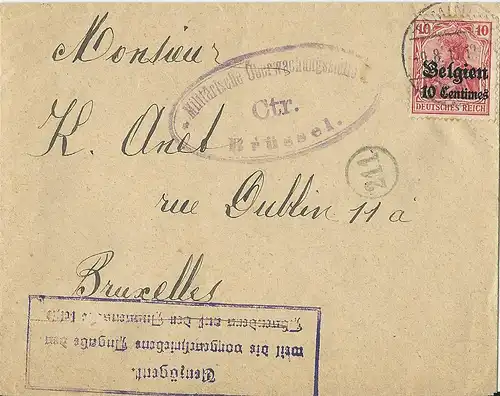 Monsieur
K. Anet
rue Dublin 11 a
Bruxelles
Militärische Überwachungsstelle
Ctr.
Brüssel.
211
10 10
Belgien
10 Centimes
DEUTSCHES REICH
Verzögert.
weil die vorgeschriebene Angabe des
Absenders auf der